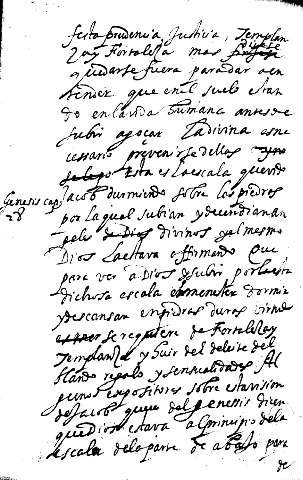 festa prudencia Justicia, Templan
za y Fortaleza mas
quedarse fuera para dar a en
tender que en el suelo estan
do en la vida humana antes de
subir a goçar la divina es ne
cessario prevenirse dellas
Esta es la escala que vido
Genesis cap. 28
Jacob durmiendo sobre las piedras
por la qual subian y decendian an
geles divinos y el mesmo
Dios la estava affirmando Que
para ver a Dios y subir por la
dichosa escala menester dormir
y descansar en piedras duras
se requiere de Fortaleza y
Templanza y huir del deleite del
blando regalo y sensualidades Al
gunos expositores sobre esta vision
de Jacob del genesis dicen
que Dios estava al principio de la
escala de la parte de abajo para
de